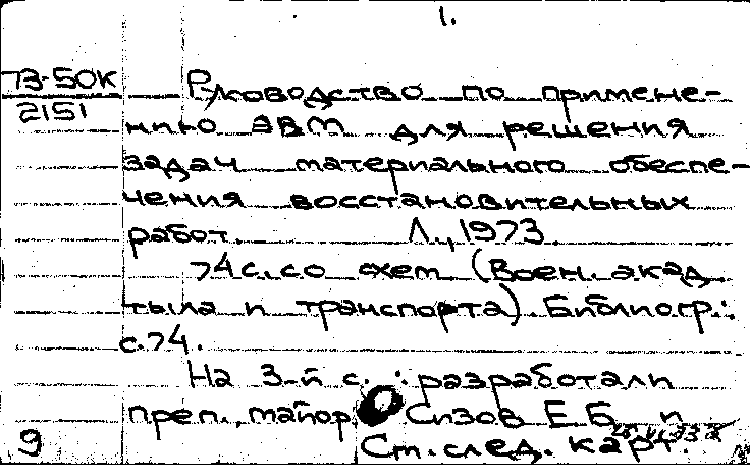 1.
ТЗ-50К
2151
Руководство по примене-
нию ЭВМ для решения
задач материального обеспе-
чения восстановительных
работ. Л., 1973.
74 с. со схем. (Воен. акад.
тыла и транспорта). Библиогр.:
с. 74.
На 3-й с.: разработали
преп., майор Сизов Е.Б. и
9 См. след. карт.